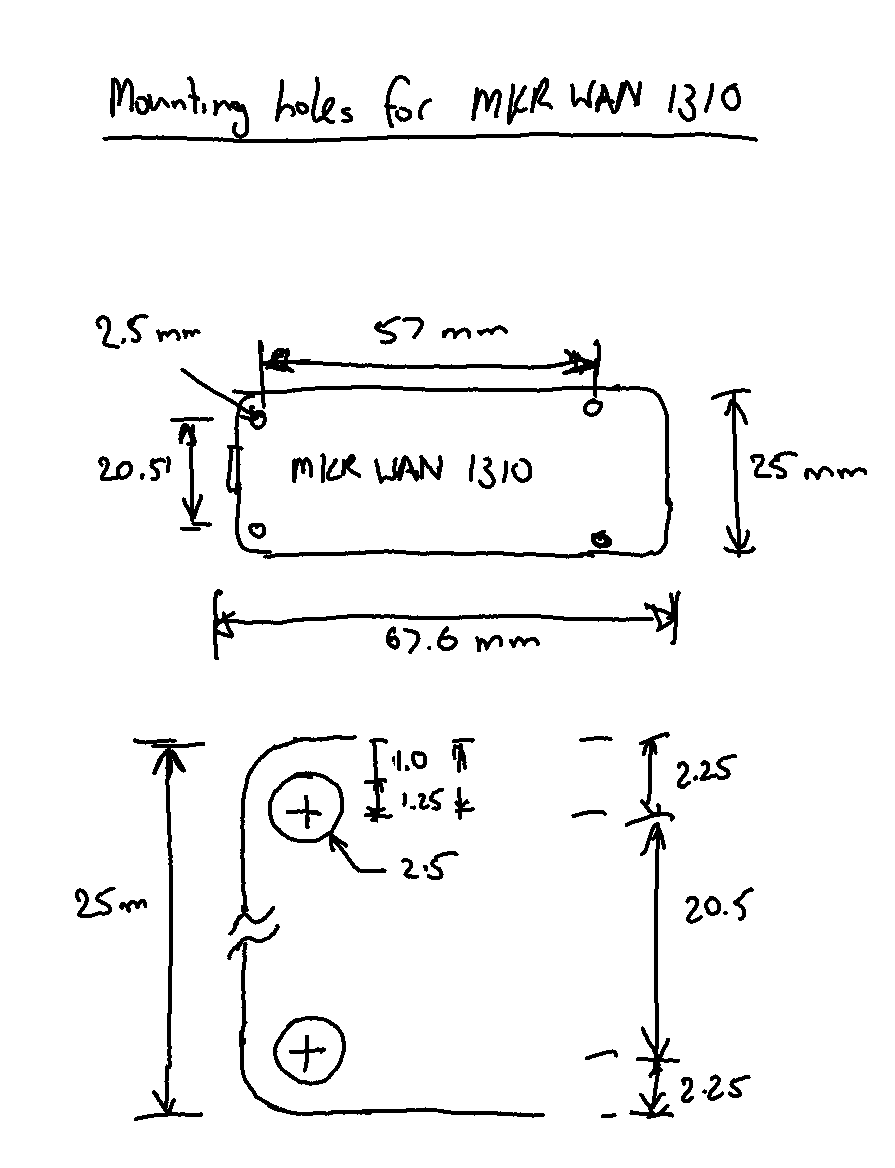 Mounting holes for MKR WAN 1310
2.5 mm
57 mm
20.5
MKR WAN 1310
25 mm
67.6 mm
1.0
2.25
1.25
2.5
25 m
20.5
2.25